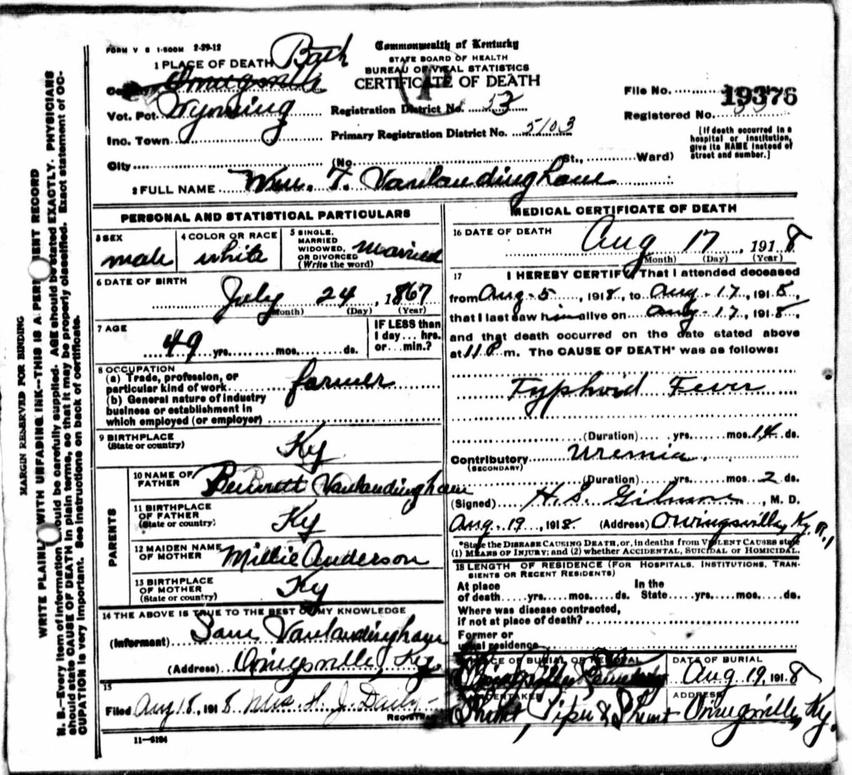 FORM V S 1-500M 2-29-12
1 PLACE OF DEATH Bath
Vot. Pct. Wyoming
Inc. Town
City (No. St., Ward)
Commonwealth of Kentucky
STATE BOARD OF HEALTH
BUREAU OF VITAL STATISTICS
CERTIFICATE OF DEATH
Registration District No. 52
Primary Registration District No. 5103
File No. 19376
Registered No.
[If death occurred in a
hospital or institution,
give its NAME instead of
street and number.]
2 FULL NAME Wm. T. Vanlandingham
PERSONAL AND STATISTICAL PARTICULARS
3 SEX male
4 COLOR OR RACE white
5 SINGLE, MARRIED WIDOWED, OR DIVORCED (Write the word) Married
6 DATE OF BIRTH July 24, 1867
(Month) (Day) (Year)
7 AGE 49 yrs. mos. ds.
IF LESS than 1 day... hrs. or... min.?
8 OCCUPATION
(a) Trade, profession, or
particular kind of work farmer
(b) General nature of industry
business or establishment in
which employed (or employer)
9 BIRTHPLACE
(State or country) Ky
PARENTS
10 NAME OF FATHER Bennett Vanlandingham
11 BIRTHPLACE OF FATHER (State or country) Ky
12 MAIDEN NAME OF MOTHER Millie Anderson
13 BIRTHPLACE OF MOTHER (State or country) Ky
14 THE ABOVE IS TRUE TO THE BEST OF MY KNOWLEDGE
(Informant) Sam Vanlandingham
(Address) Owingsville, Ky
15
Filed Aug 18, 1918 Mrs H. J. Daily
REGISTRAR
11-5184
MEDICAL CERTIFICATE OF DEATH
16 DATE OF DEATH Aug 17, 1918
(Month) (Day) (Year)
17 I HEREBY CERTIFY That I attended deceased
from Aug-5, 1918, to Aug-17, 1918,
that I last saw him alive on Aug-17, 1918,
and that death occurred on the date stated above
at m. The CAUSE OF DEATH* was as follows:
Typhoid Fever
(Duration) yrs. mos. 14 ds.
Contributory Uremia.
(SECONDARY)
(Duration) yrs. mos. 2 ds.
(Signed) H. S. Gilmore, M. D.
Aug-19, 1918. (Address) Owingsville, Ky. R.1
*State the DISEASE CAUSING DEATH, or, in deaths from VIOLENT CAUSES state
(1) MEANS OF INJURY; and (2) whether ACCIDENTAL, SUICIDAL or HOMICIDAL.
18 LENGTH OF RESIDENCE (FOR HOSPITALS, INSTITUTIONS, TRAN-
SIENTS OR RECENT RESIDENTS)
At place of death yrs. mos. ds. In the State yrs. mos. ds.
Where was disease contracted,
if not at place of death?
Former or
usual residence
PLACE OF BURIAL OR REMOVAL
DATE OF BURIAL
Aug 19, 1918
UNDERTAKER
ADDRESS
Owingsville, Ky.
MARGIN RESERVED FOR BINDING
WRITE PLAINLY WITH UNFADING INK—THIS IS A PERMANENT RECORD
N. B.—Every item of information should be carefully supplied. AGE should be stated EXACTLY. PHYSICIANS
should state CAUSE OF DEATH in plain terms, so that it may be properly classified. Exact statement of OC-
CUPATION is very important. See instructions on back of certificate.